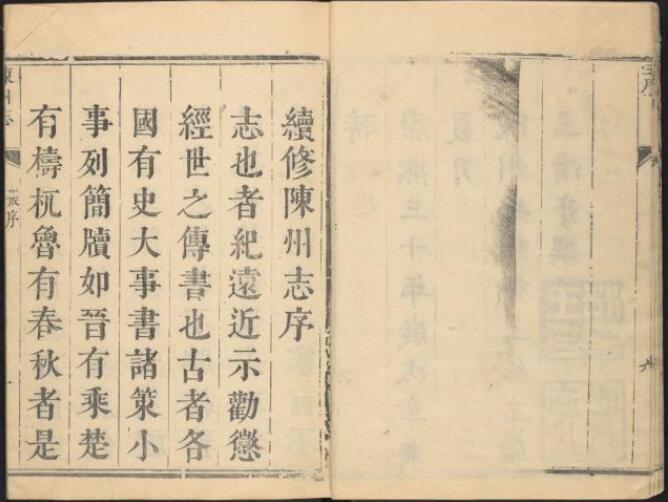 續修陳州志序
志也者紀遠近示勸懲
經世之傳書也古者各
國有史大事書諸策小
事列簡牘如晉有乘楚
有檮杌魯有春秋者是